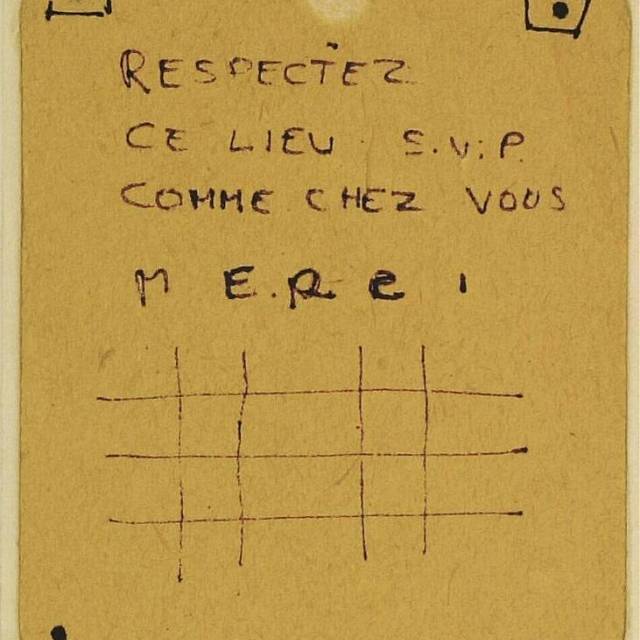 RESPECTEZ
CE LIEU S.V.P
COMME CHEZ VOUS
MERCI